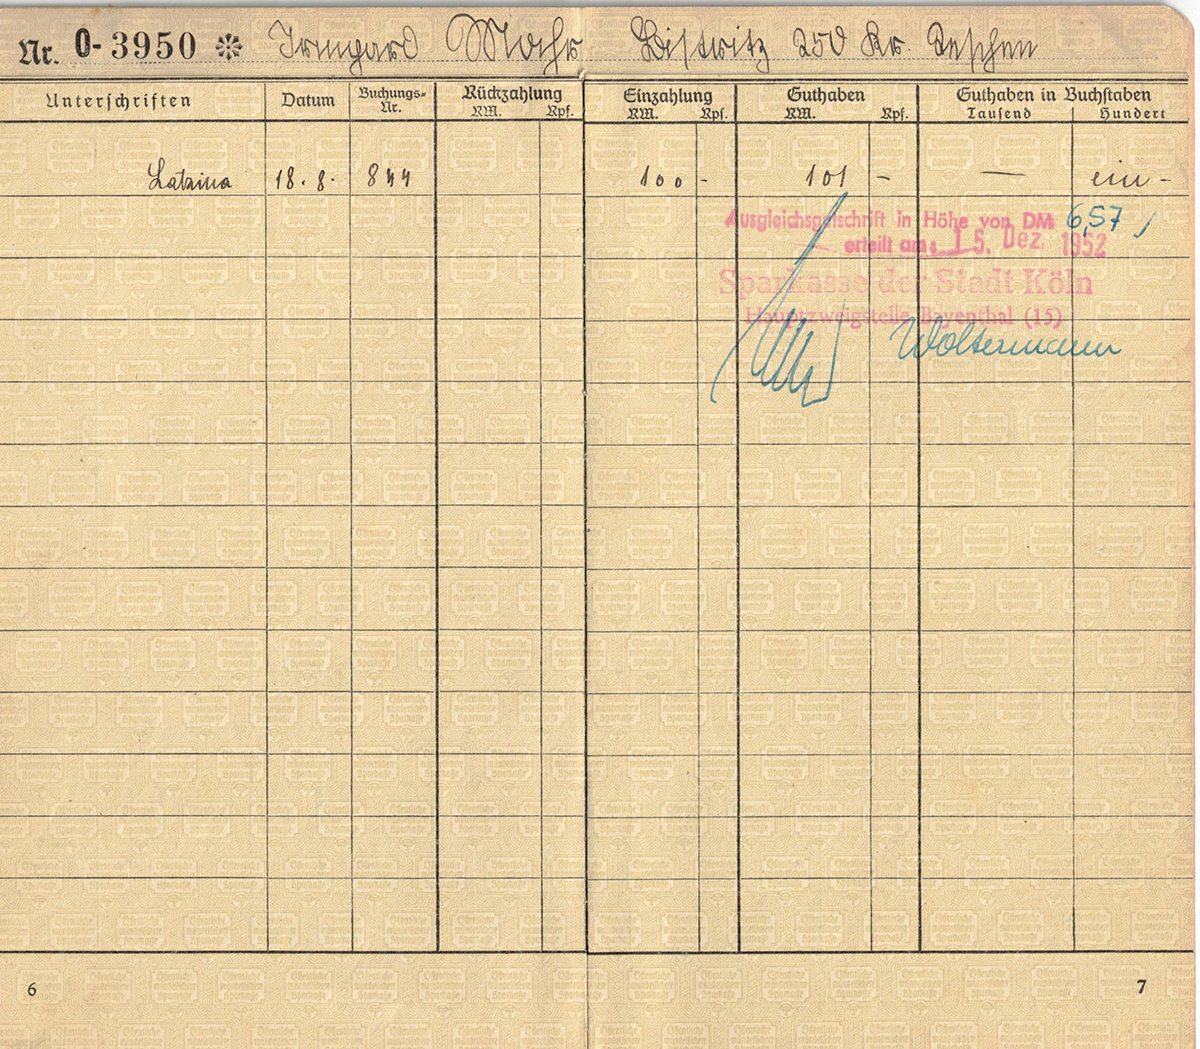 Nr. 0-3950 ❊ Irmgard Mohr Bistritz 250 Kr. Teschen
Unterschriften Datum Buchungs-Nr. Rückzahlung RM. Rpf. Einzahlung RM. Rpf. Guthaben RM. Rpf. Guthaben in Buchstaben Tausend Hundert
18.8. 844 100 - 101 - — ein -
Ausgleichsgutschrift in Höhe von DM 6,57
erteilt am: 15. Dez 1952
Sparkasse der Stadt Köln
Hauptzweigstelle Bayenthal (15)
Woltermann
6 7